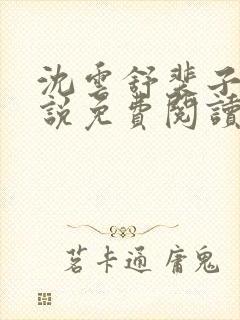 沈雲舒裴子
說免費閱讀
茗卡通 庸鬼